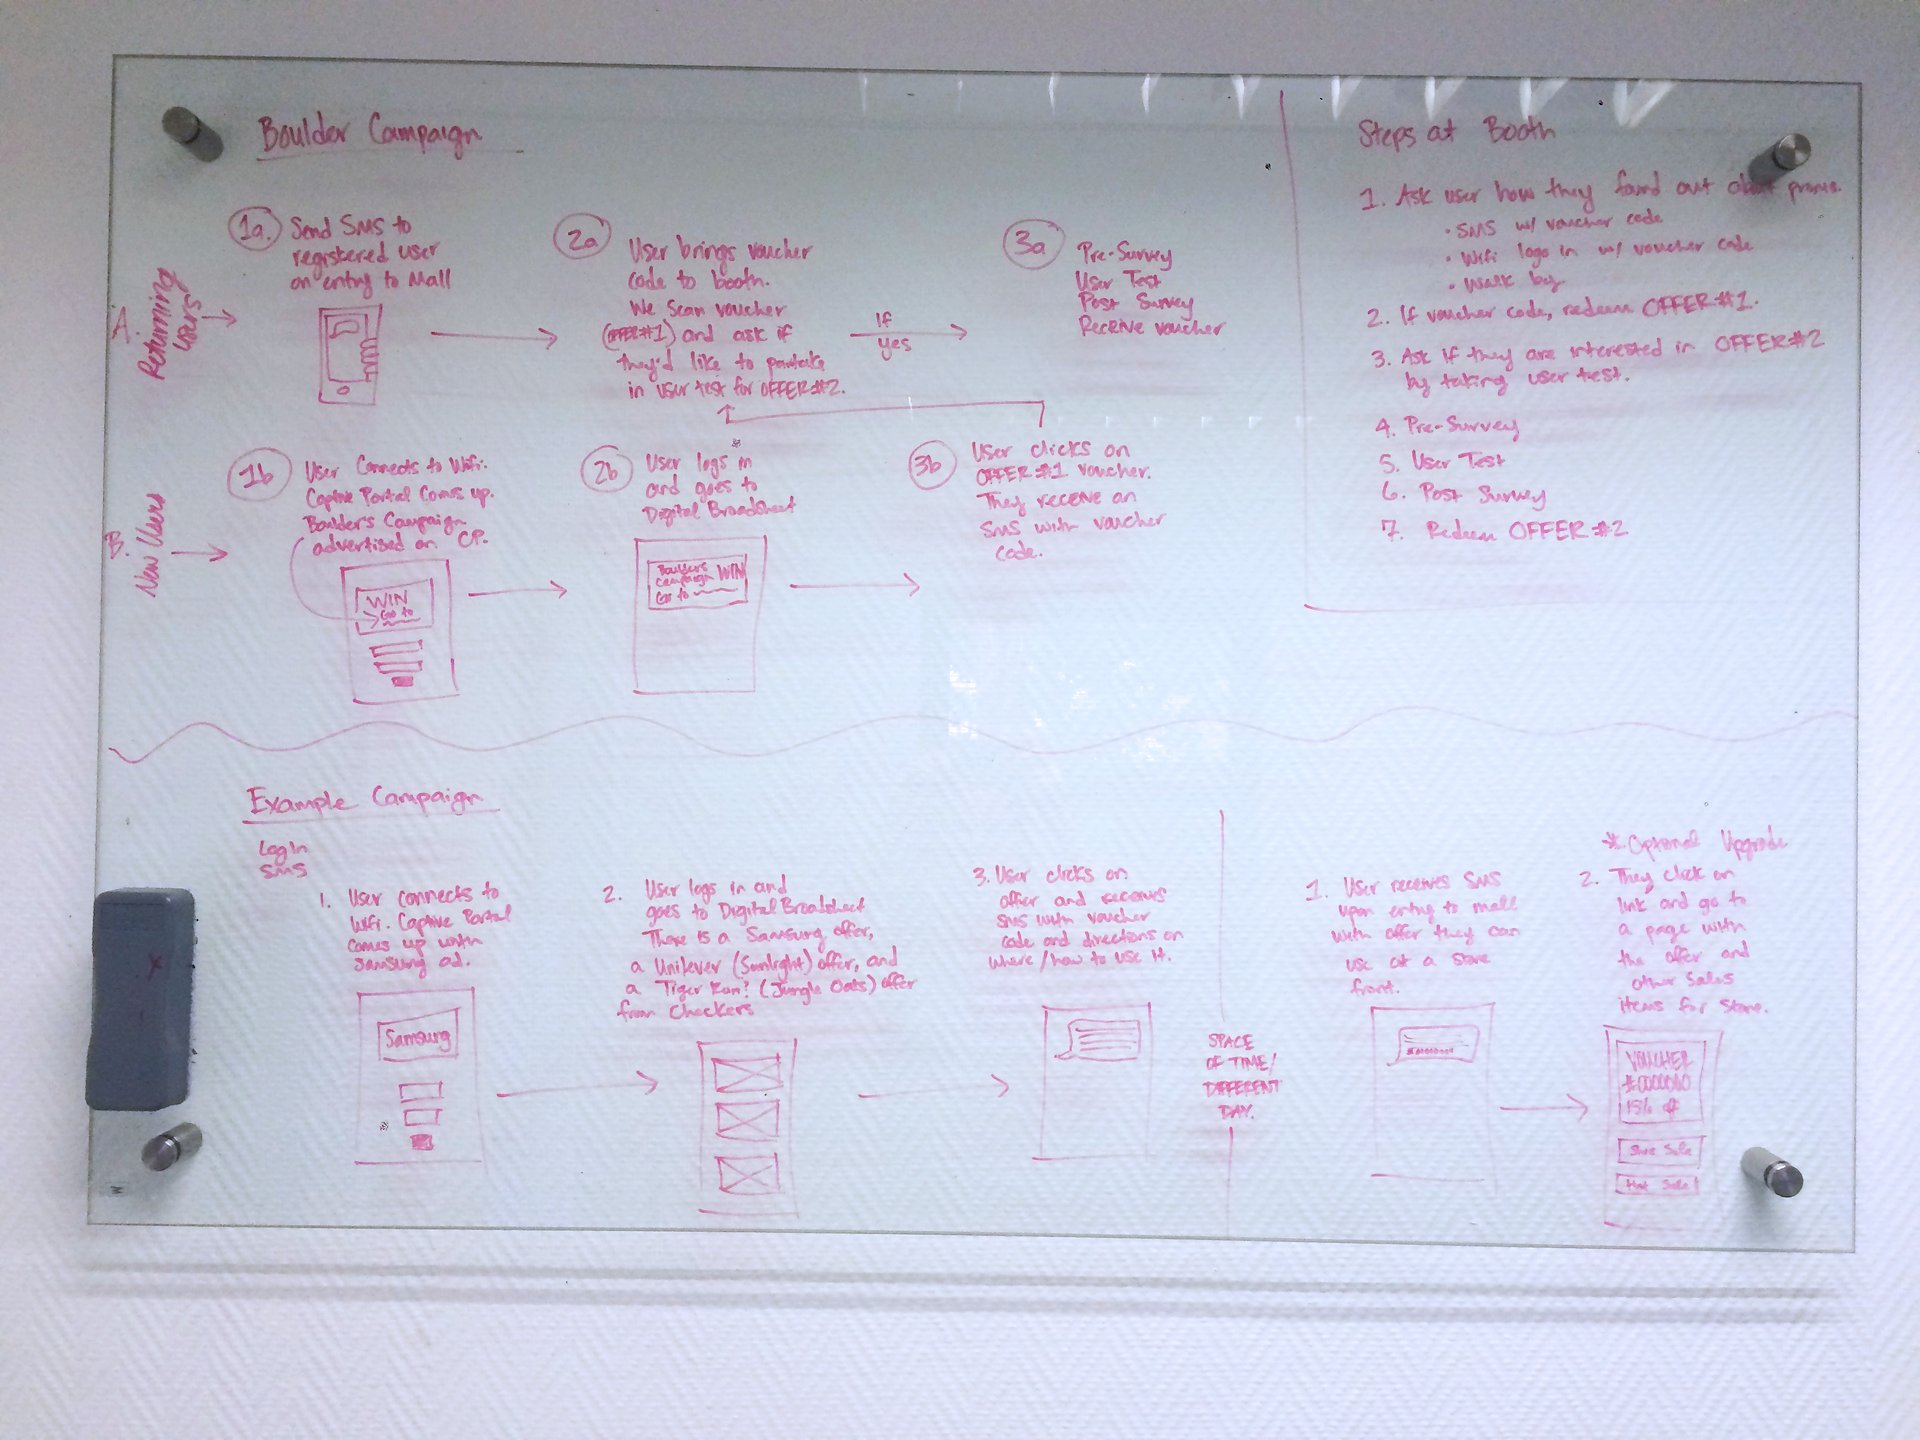 Boulder Campaign
A. Returning
users
1a.
Send SMS to
registered user
on entry to Mall
2a
User brings voucher
code to booth.
We Scan voucher
(OFFER#1) and ask if
they'd like to partake
in user test for OFFER#2.
If
yes
3a
Pre-Survey
User Test
Post Survey
Receive voucher
B. New Users
1b
User Connects to Wifi.
Captive Portal Comes up.
Boulders Campaign
advertised on CP.
WIN
Go to
2b
User logs in
and goes to
Digital Broadsheet
Boulders
Campaign WIN
Go to
3b
User clicks on
OFFER #1 voucher.
They receive an
SMS with voucher
code.
Steps at Booth
1. Ask user how they found out about promo.
• SMS w/ voucher code
• Wifi logo in w/ voucher code
• Walk by
2. If voucher code, redeem OFFER#1.
3. Ask if they are interested in OFFER#2
by taking user test.
4. Pre-Survey
5. User Test
6. Post Survey
7. Redeem OFFER #2
Example Campaign
Log In
SMS
1. User connects to
Wifi. Captive Portal
comes up with
Samsung ad.
Samsung
2. User logs in and
goes to Digital Broadsheet
There is a Samsung offer,
a Unilever (Sunlight) offer, and
a Tiger (Jungle Oats) offer
from Checkers
3. User clicks on
offer and receives
SMS with voucher
code and directions on
where/how to use it.
SPACE
OF TIME/
DIFFERENT
DAY.
1. User receives SMS
upon entry to mall
with offer they can
use at a store
front.
* Optional Upgrade
2. They click on
link and go to
a page with
the offer and
other Sales
items for Store.
VOUCHER
15%
Sale
Hot Sale